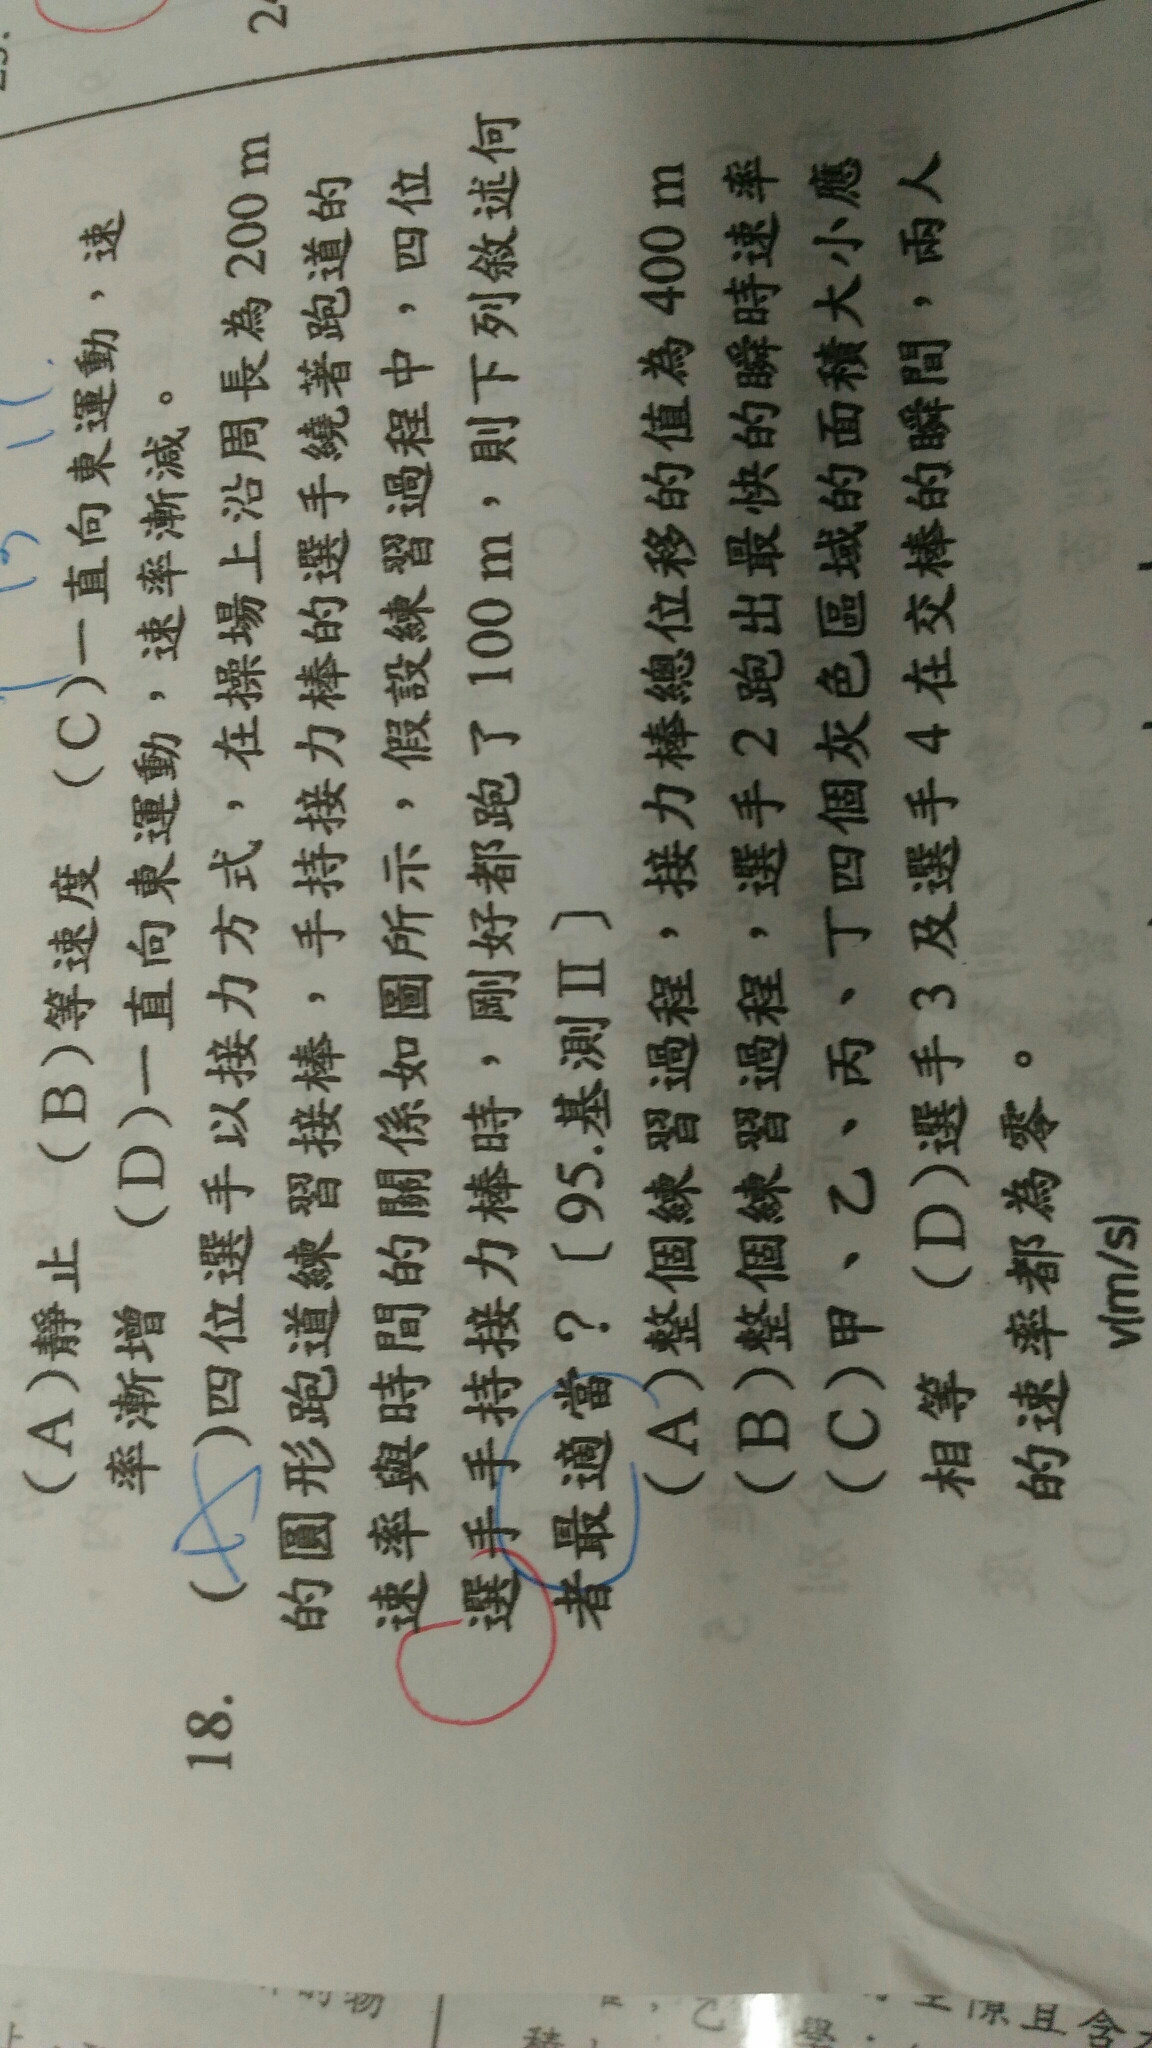 24
(A)靜止 (B)等速度 (C)一直向東運動，速
率漸增 (D)一直向東運動，速率漸減。
18. (A)四位選手以接力方式，在操場上沿周長為200 m
的圓形跑道練習接棒，手持接力棒的選手繞著跑道的
速率與時間的關係如圖所示，假設練習過程中，四位
選手手持接力棒時，剛好都跑了100 m，則下列敘述何
者最適當？〔95.基測II〕
(A)整個練習過程，接力棒總位移的值為400 m
(B)整個練習過程，選手2跑出最快的瞬時速率
(C)甲、乙、丙、丁四個灰色區域的面積大小應
相等 (D)選手3及選手4在交棒的瞬間，兩人
的速率都為零。
v(m/s)